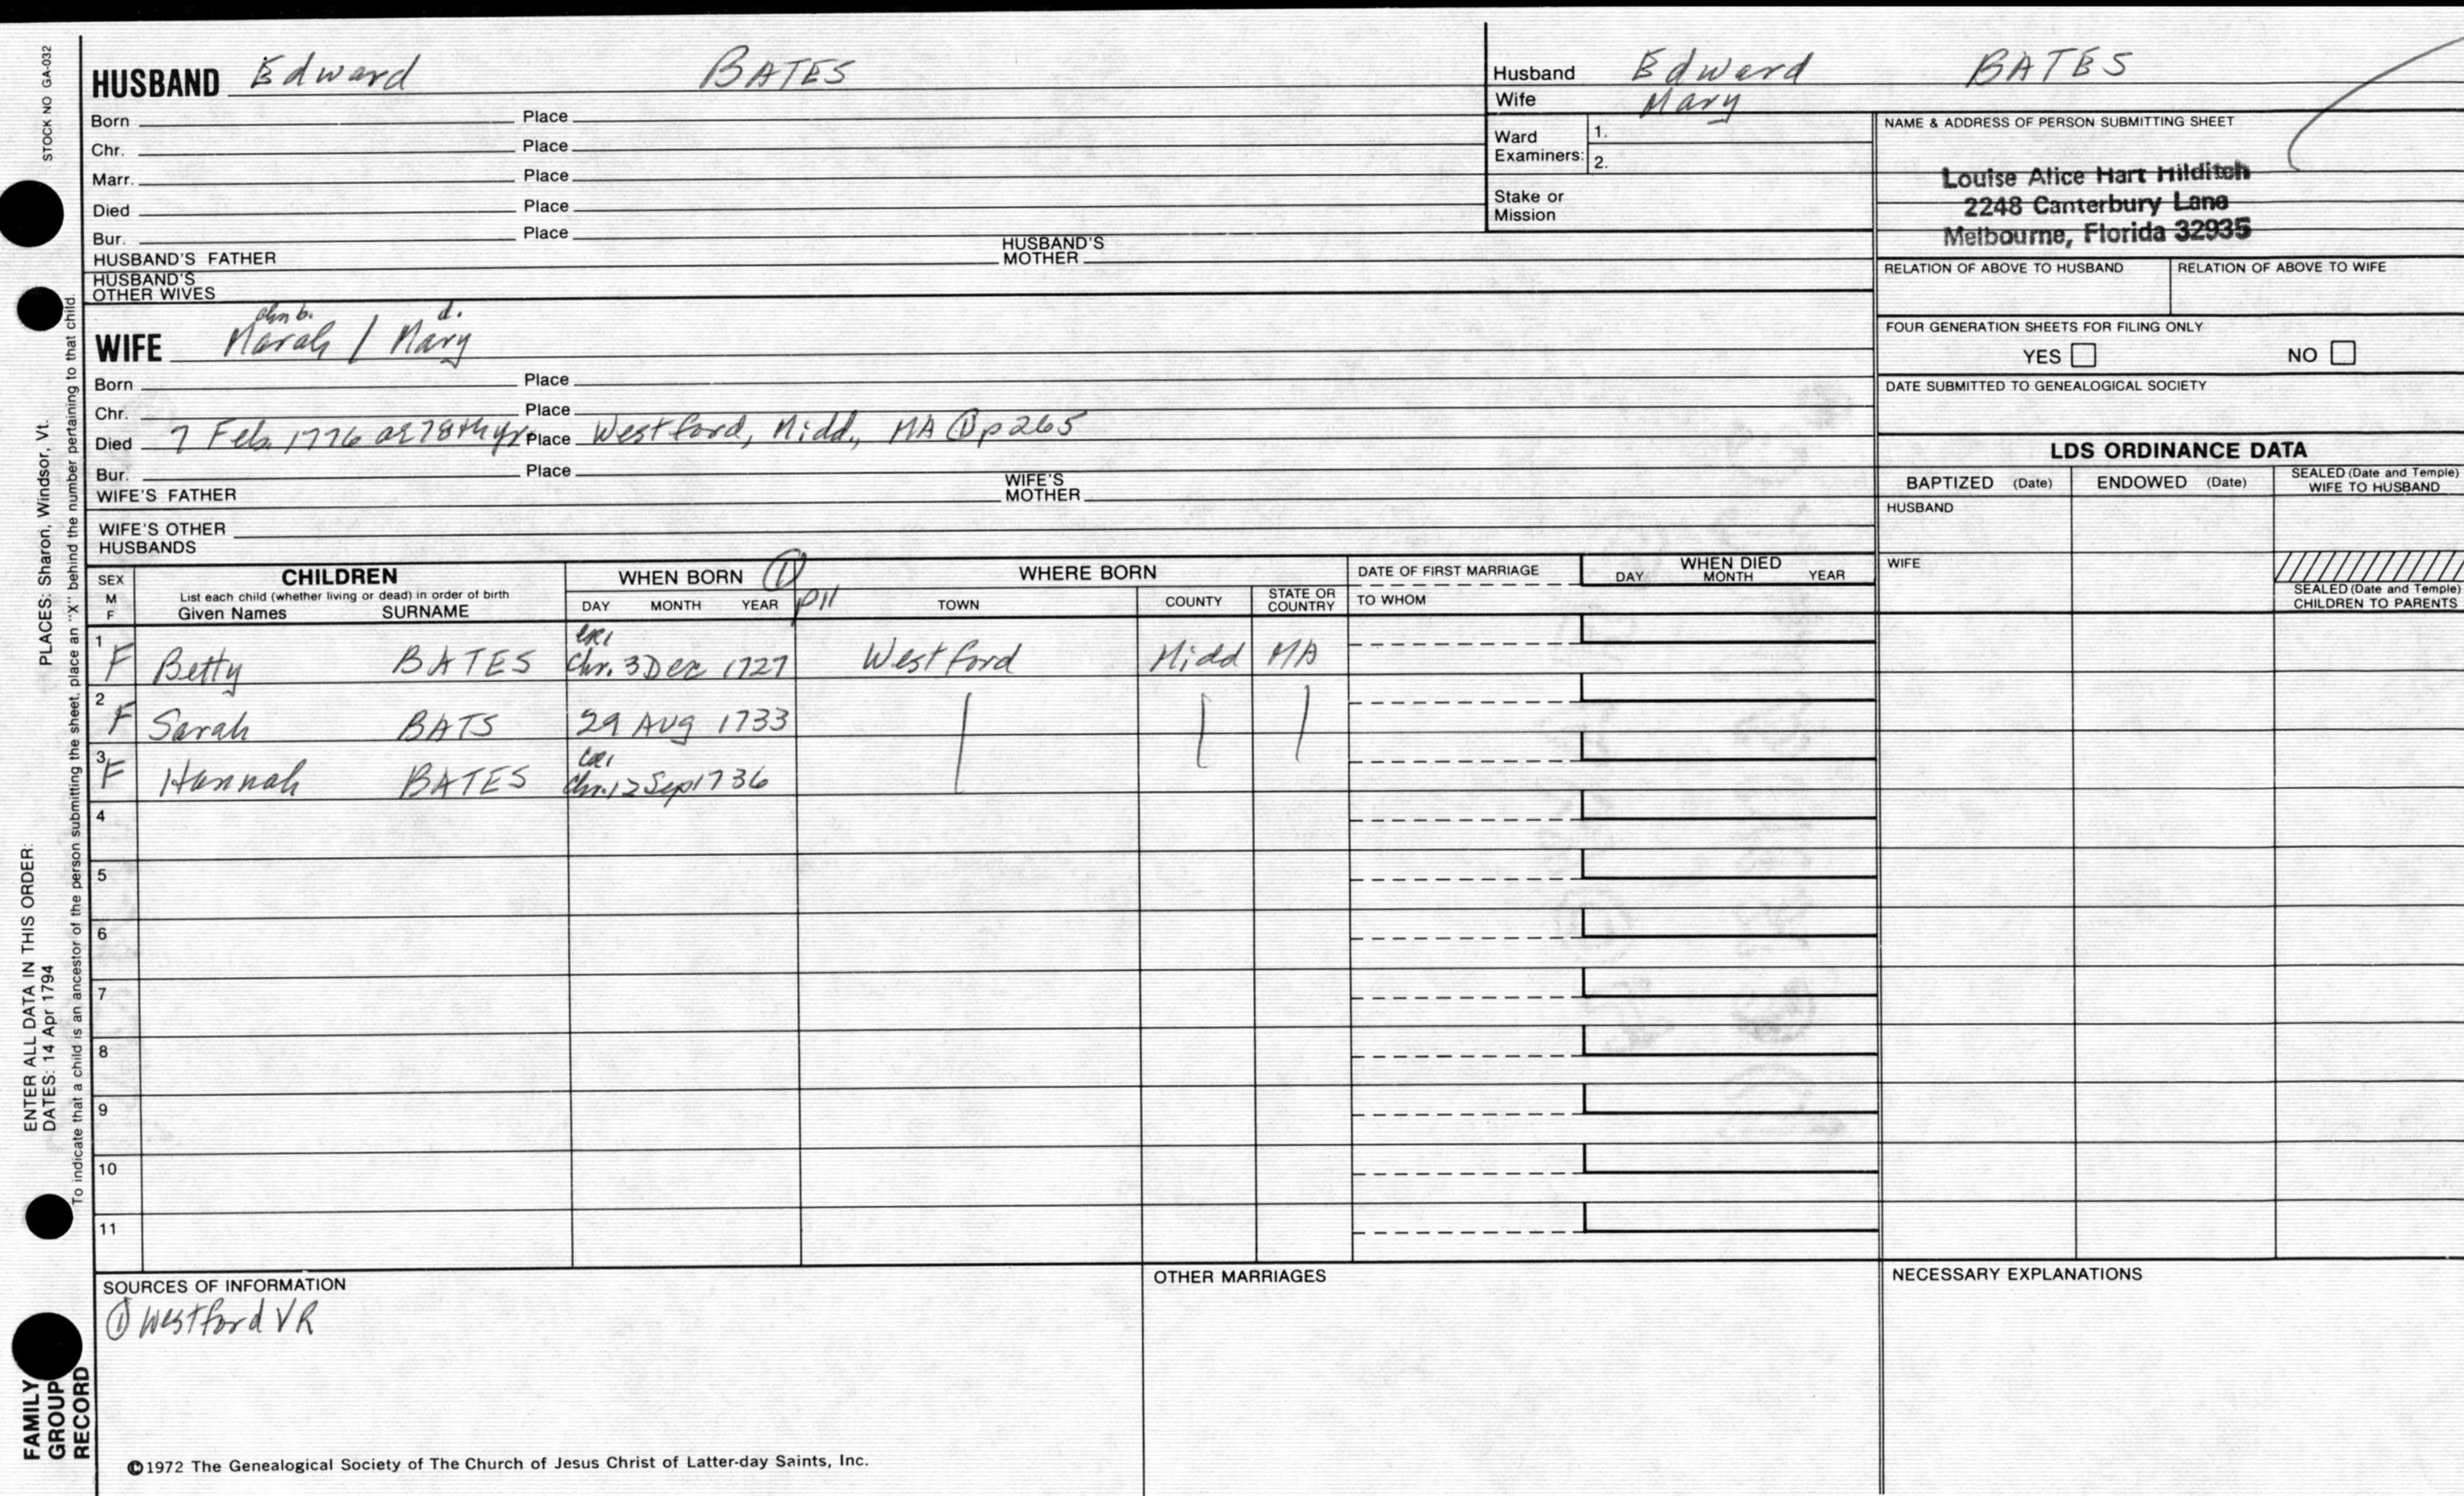 STOCK NO GA-032
HUSBAND Edward BATES
Born Place
Chr. Place
Marr. Place
Died Place
Bur. Place
HUSBAND'S FATHER HUSBAND'S MOTHER
HUSBAND'S OTHER WIVES
chn b. d.
WIFE Marah / Mary
Born Place
Chr. Place
Died 7 Feb. 1776 ae 78th yr Place Westford, Midd., MA ① p265
Bur. Place
WIFE'S FATHER WIFE'S MOTHER
WIFE'S OTHER HUSBANDS
Husband Edward BATES
Wife Mary
Ward Examiners: 1.
2.
Stake or Mission
NAME & ADDRESS OF PERSON SUBMITTING SHEET
Louise Alice Hart Hilditch
2248 Canterbury Lane
Melbourne, Florida 32935
RELATION OF ABOVE TO HUSBAND RELATION OF ABOVE TO WIFE
FOUR GENERATION SHEETS FOR FILING ONLY
YES NO
DATE SUBMITTED TO GENEALOGICAL SOCIETY
LDS ORDINANCE DATA
BAPTIZED (Date) ENDOWED (Date) SEALED (Date and Temple) WIFE TO HUSBAND
HUSBAND
WIFE
SEALED (Date and Temple) CHILDREN TO PARENTS
SEX M F
CHILDREN
List each child (whether living or dead) in order of birth
Given Names SURNAME
WHEN BORN ① p11
DAY MONTH YEAR
WHERE BORN
TOWN COUNTY STATE OR COUNTRY
DATE OF FIRST MARRIAGE
TO WHOM
WHEN DIED
DAY MONTH YEAR
1 F Betty BATES Chr. 3 Dec 1727 Westford Midd MA
2 F Sarah BATS 29 Aug 1733
3 F Hannah BATES Chr. 12 Sep 1736
4
5
6
7
8
9
10
11
SOURCES OF INFORMATION
① Westford VR
OTHER MARRIAGES
NECESSARY EXPLANATIONS
©1972 The Genealogical Society of The Church of Jesus Christ of Latter-day Saints, Inc.
ENTER ALL DATA IN THIS ORDER:
DATES: 14 Apr 1794 PLACES: Sharon, Windsor, Vt.
To indicate that a child is an ancestor of the person submitting the sheet, place an "X" behind the number pertaining to that child.
FAMILY GROUP RECORD